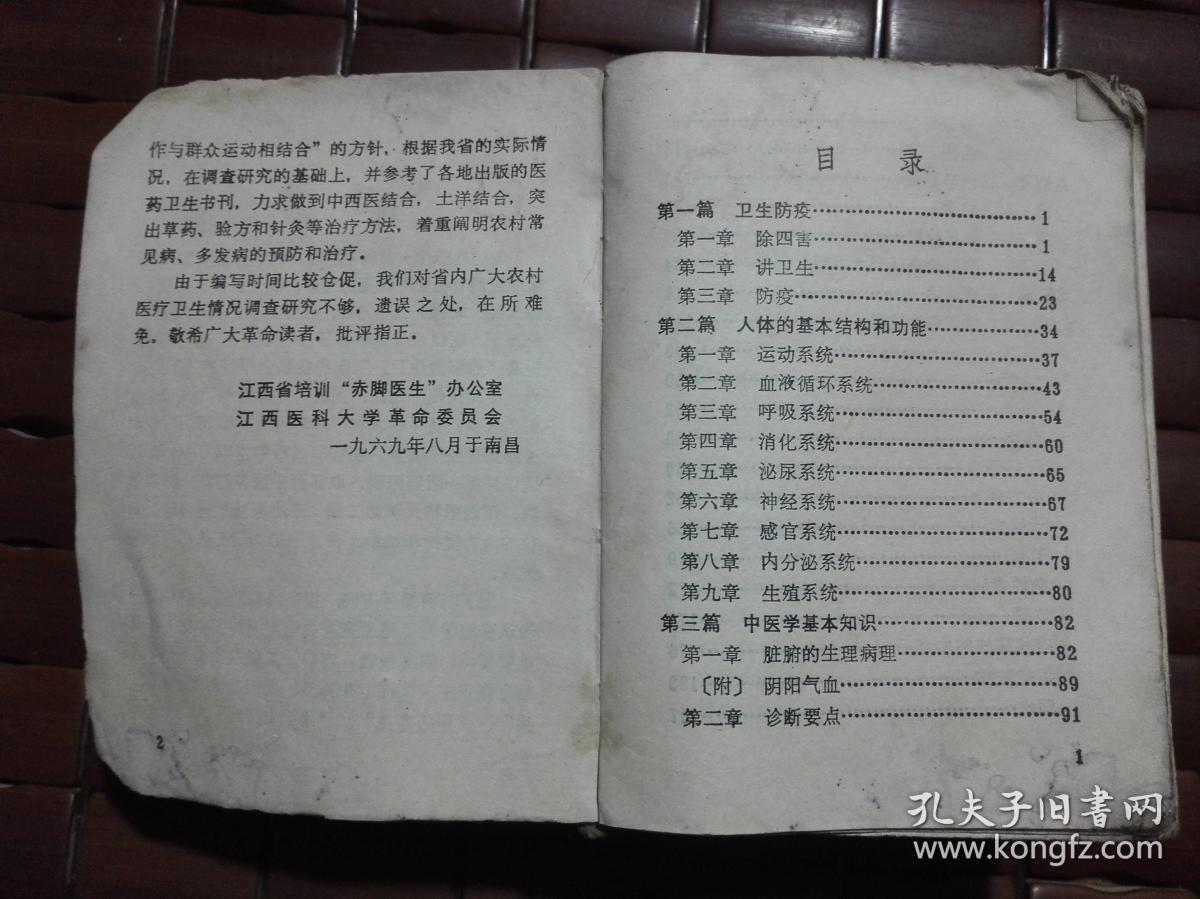 作与群众运动相结合”的方针，根据我省的实际情
况，在调查研究的基础上，并参考了各地出版的医
药卫生书刊，力求做到中西医结合，土洋结合，突
出草药、验方和针灸等治疗方法，着重阐明农村常
见病、多发病的预防和治疗。
由于编写时间比较仓促，我们对省内广大农村
医疗卫生情况调查研究不够，遗误之处，在所难
免。敬希广大革命读者，批评指正。
江西省培训“赤脚医生”办公室
江西医科大学革命委员会
一九六九年八月于南昌
2
目录
第一篇 卫生防疫……………………………1
第一章 除四害……………………………1
第二章 讲卫生……………………………14
第三章 防疫……………………………23
第二篇 人体的基本结构和功能……………34
第一章 运动系统…………………………37
第二章 血液循环系统……………………43
第三章 呼吸系统…………………………54
第四章 消化系统…………………………60
第五章 泌尿系统…………………………65
第六章 神经系统…………………………67
第七章 感官系统…………………………72
第八章 内分泌系统………………………79
第九章 生殖系统…………………………80
第三篇 中医学基本知识…………………82
第一章 脏腑的生理病理…………………82
〔附〕 阴阳气血…………………………89
第二章 诊断要点…………………………91
1
孔夫子旧书网
www.kongfz.com